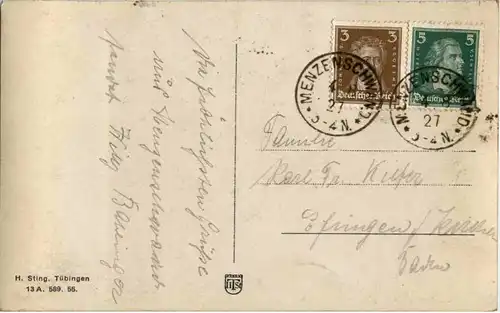 Die herzlichsten Grüße
aus Menzenschwand
sendet
3 3
Deutsches Reich
5 5
Deutsches Reich
MENZENSCHWAND
27
5-4N.
MENZENSCHWAND
27
5-4N.
Familie
Karl Fr.
Efringen /
Baden
H. Sting, Tübingen
13 A. 589. 55.